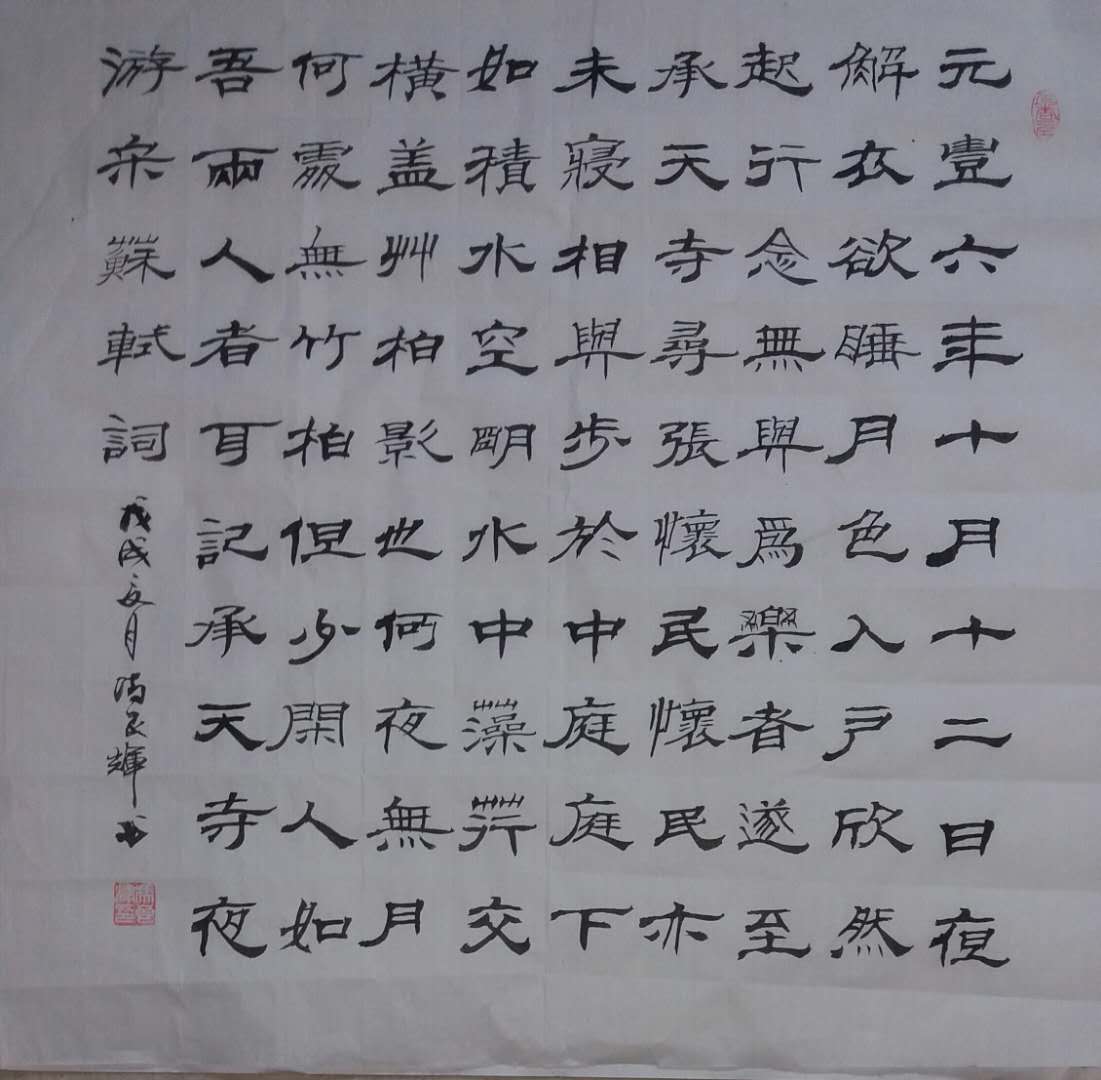 元豐六年十月十二日夜
解衣欲睡月色入戶欣然
起行念無與爲樂者遂至
承天寺尋張懷民懷民亦
未寢相與步於中庭庭下
如積水空明水中藻荇交
橫盖艸柏影也何夜無月
何處無竹柏但少閑人如
吾兩人者耳記承天寺夜
游宋蘇軾詞
戊戌夏月馮輝书